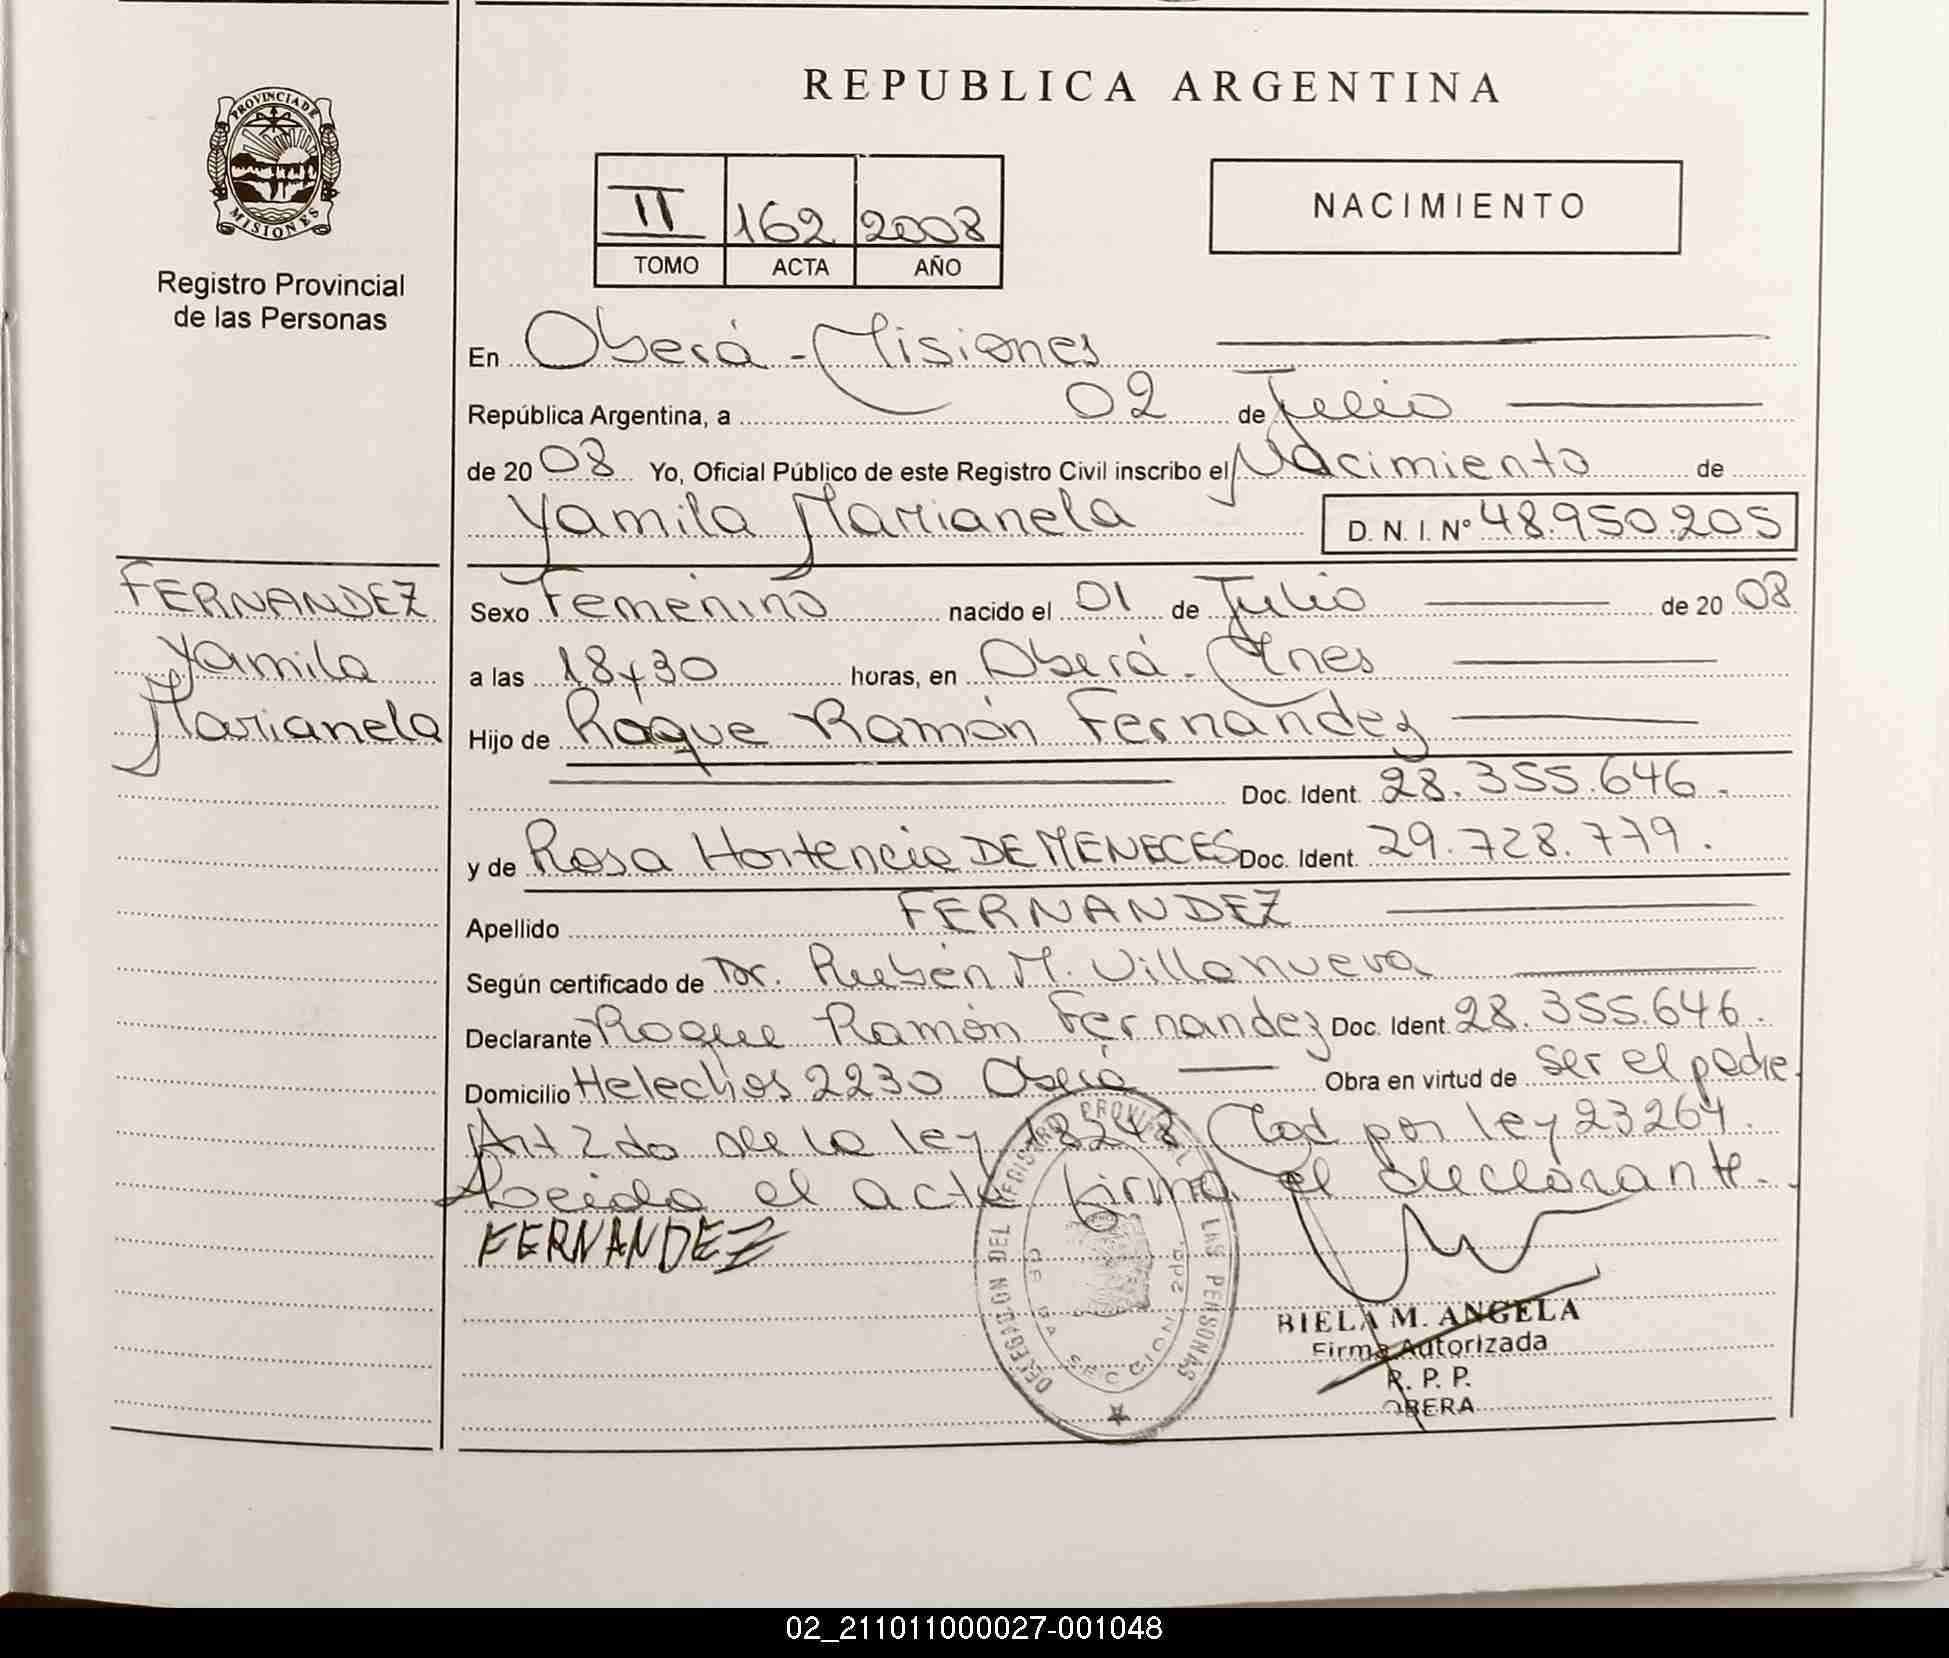 REPUBLICA ARGENTINA
PROVINCIA DE
MISIONES
Registro Provincial
de las Personas
II 162 2008
TOMO ACTA AÑO
NACIMIENTO
En Oberá - Misiones
República Argentina, a 02 de Julio
de 2008 Yo, Oficial Público de este Registro Civil inscribo el Nacimiento de
Yamila Marianela D. N. I. Nº 48.950.205
FERNANDEZ
Yamila
Marianela
Sexo Femenino nacido el 01 de Julio de 2008
a las 18y30 horas, en Oberá - Mnes
Hijo de Roque Ramón Fernandez
Doc. Ident. 28.355.646.
y de Rosa Hortencia DE MENECES Doc. Ident. 29.728.779.
Apellido FERNANDEZ
Según certificado de Dr. Rubén M. Villanueva
Declarante Roque Ramón Fernandez Doc. Ident. 28.355.646.
Domicilio Helechos 2230 Oberá Obra en virtud de ser el padre.
Art 2do de la ley 18248 Mod por ley 23264.
Leida el acta firma el declarante.
FERNANDEZ
DELEGACION DEL REGISTRO PROVINCIAL DE LAS PERSONAS
OBERA SECCION 2da.
BIELA M. ANGELA
Firma Autorizada
R. P. P.
OBERA
02_211011000027-001048